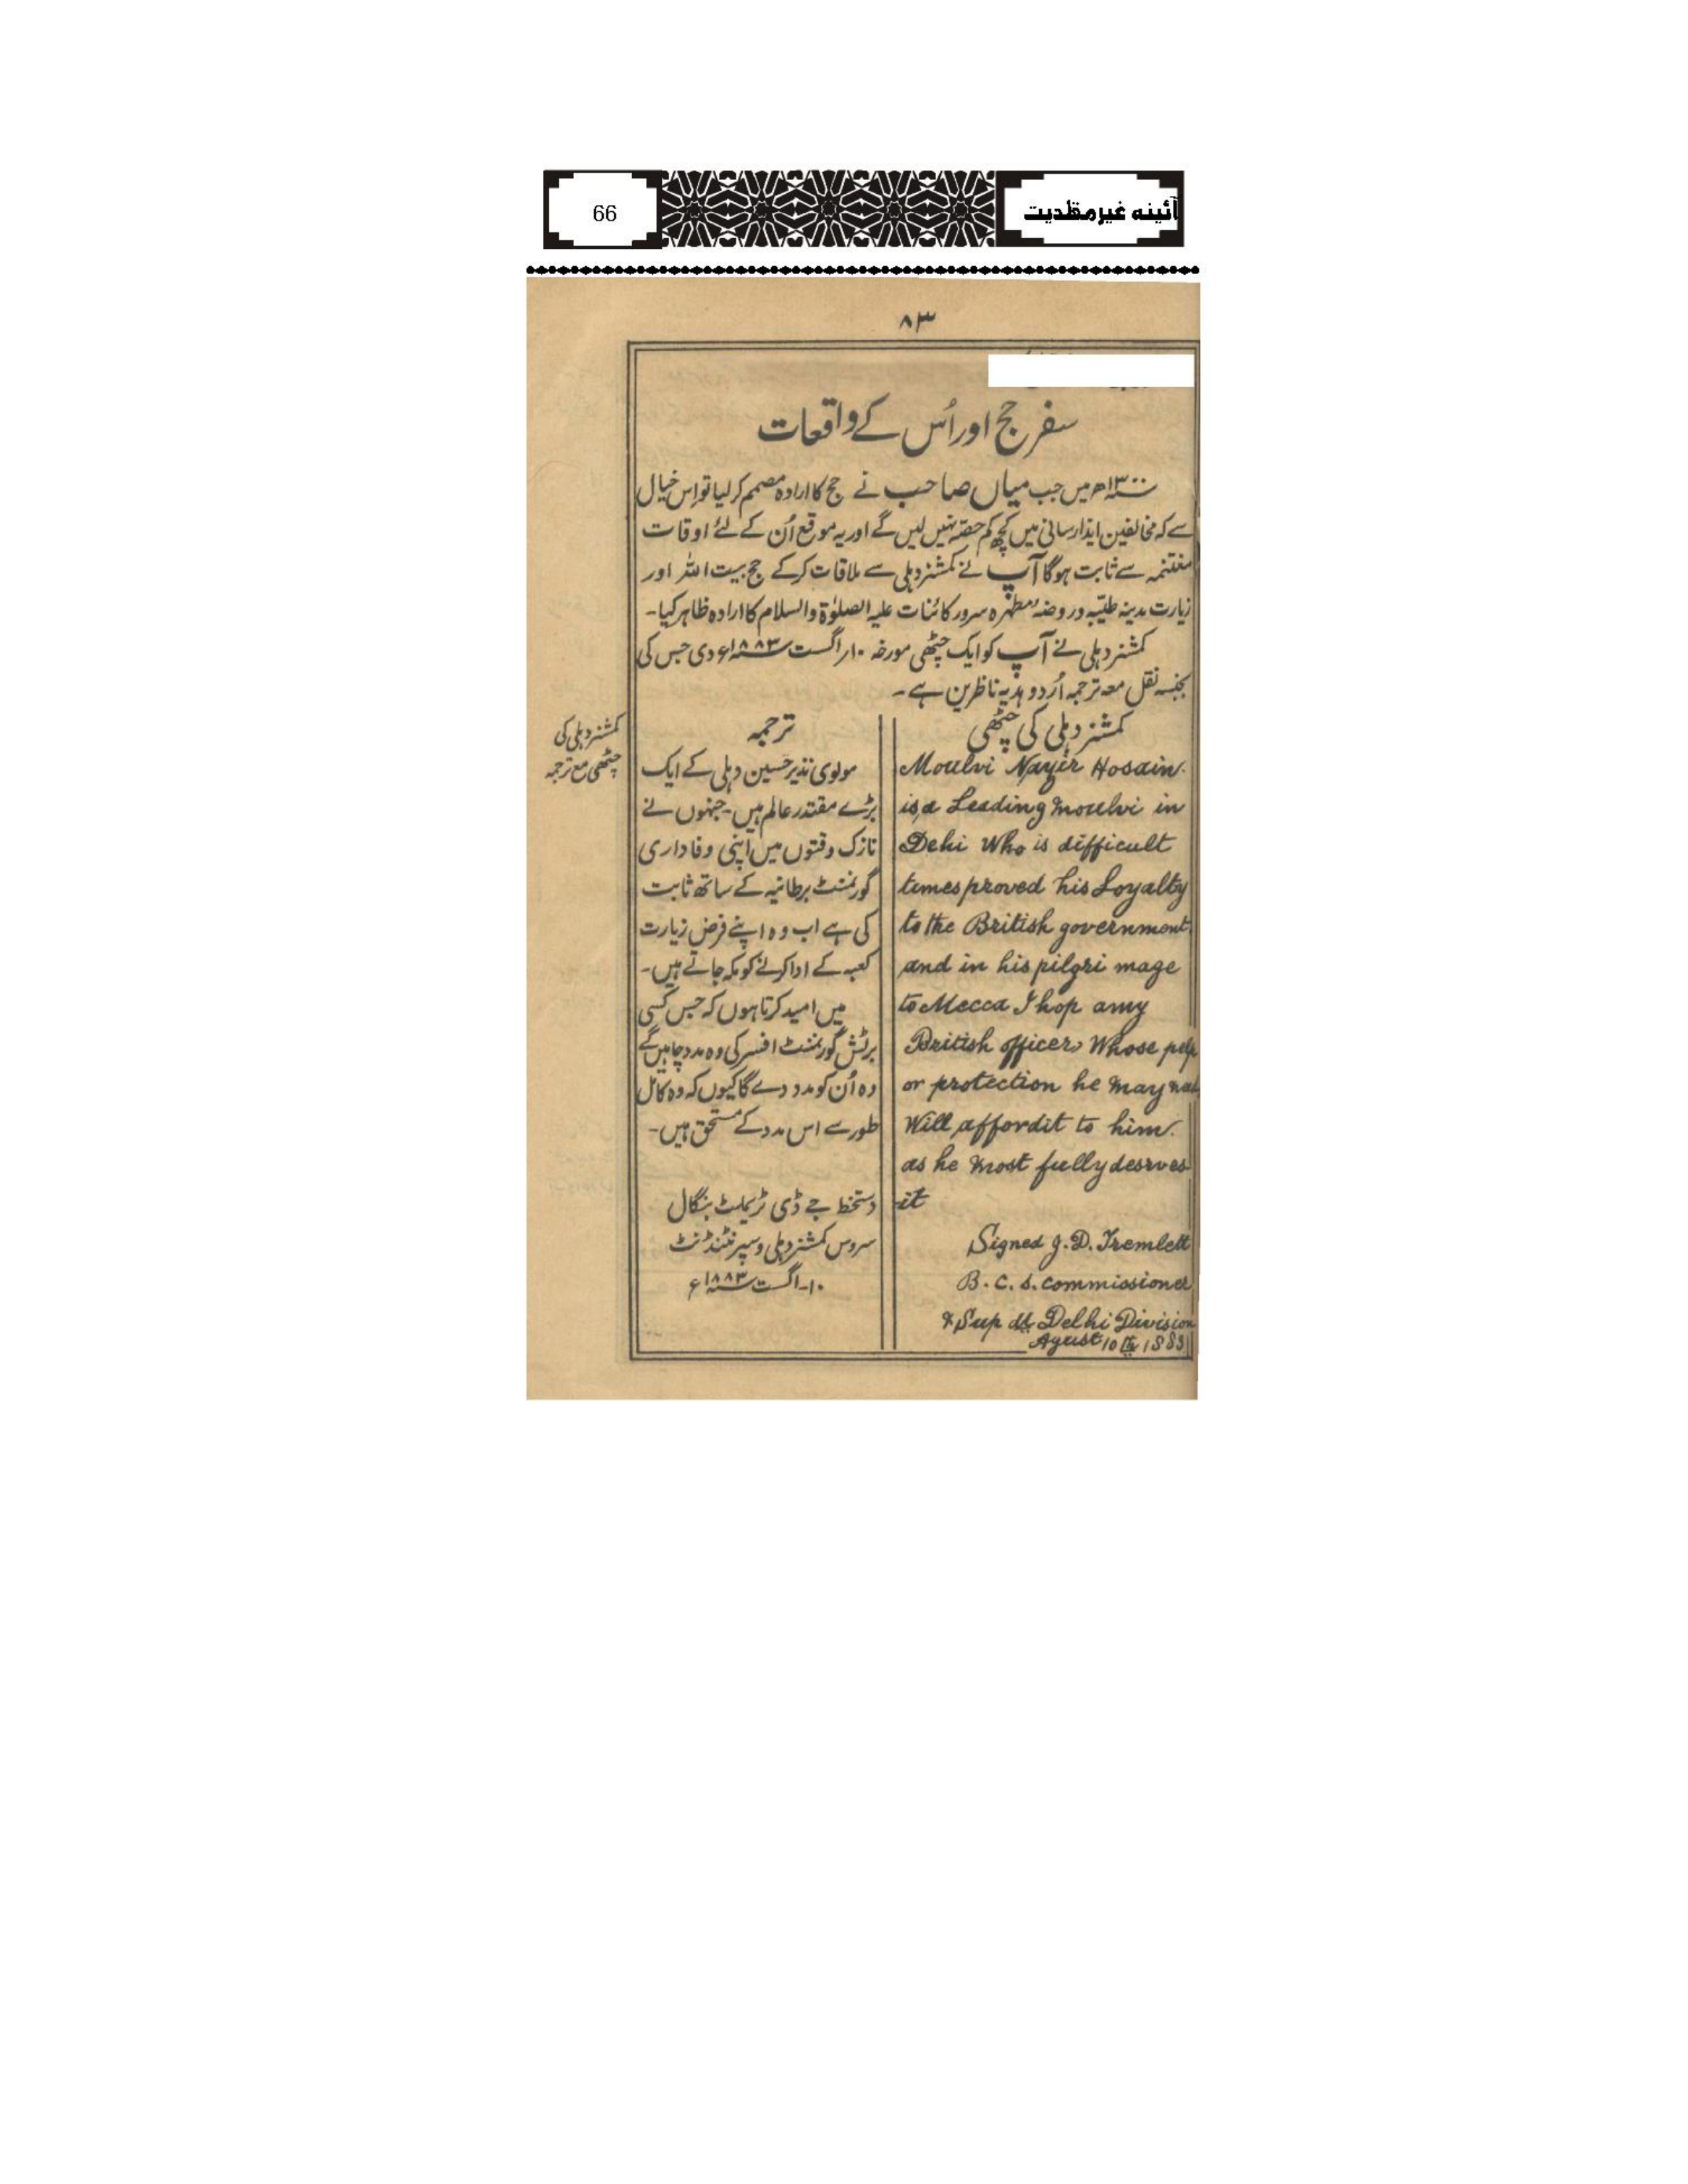 آئینہ غیر مقلدیت
66
۸۳
سفر حج اور اُس کے واقعات
۱۳۰۰ھ میں جب میاں صاحب نے حج کا ارادہ مصمم کر لیا تو اِس خیال
سے کہ مخالفین ایذا رسانی میں کچھ کم حصّہ نہیں لیں گے اور یہ موقع اُن کے لئے اوقات
مغتنمہ سے ثابت ہوگا آپ نے کمشنر دہلی سے ملاقات کرکے حج بیت اللہ اور
زیارت مدینہ طیّبہ و روضۂ مطہرہ سرور کائنات علیہ الصلوٰۃ والسلام کا ارادہ ظاہر کیا۔
کمشنر دہلی نے آپ کو ایک چٹھی مورخہ ۱۰؍ اگست ۱۸۸۳ء دی جس کی
بجنسہ نقل معہ ترجمہ اُردو ہدیہ ناظرین ہے۔
کمشنر دہلی کی چٹھی
Moulvi Nazir Hosain.
is a Leading moulvi in
Dehi Who is difficult
times proved his Loyalty
to the British government
and in his pilgri mage
to Mecca I hop amy
British officer, Whose pelp
or protection he may
Will affordit to him.
as he most fully desrves
it
Signed J. D. Tremlett
B. C. S. commissioner
& Sup dt Delhi Division
Agust 10 th 1883
ترجمہ
مولوی نذیر حسین دہلی کے ایک
بڑے مقتدر عالم ہیں۔ جنہوں نے
نازک وقتوں میں اپنی وفاداری
گورنمنٹ برطانیہ کے ساتھ ثابت
کی ہے اب وہ اپنے فرض زیارت
کعبہ کے ادا کرنے کو مکہ جاتے ہیں۔
میں امید کرتا ہوں کہ جس کسی
برٹش گورنمنٹ افسر کی وہ مدد چاہیں گے
وہ اُن کو مدد دے گا کیوں کہ وہ کامل
طور سے اس مدد کے مستحق ہیں۔
دستخط جے ڈی ٹریملٹ بنگال
سروس کمشنر دہلی و سپرنٹنڈنٹ
۱۰۔ اگست ۱۸۸۳ء
کمشنر دہلی کی
چٹھی مع ترجمہ